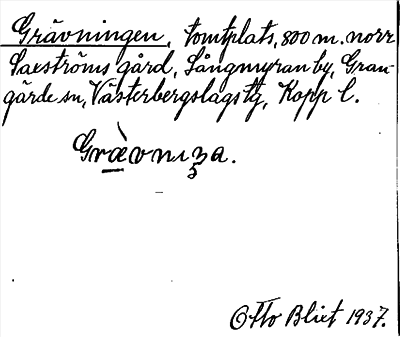 Grävningen, tomtplats, 800 m. norr
Saxströms gård, Sångmyran by, Gran-
gärde sn, Västerbergslags tg, Kopp l.
Græ̀vnıŋa.
Otto Blixt 1937.